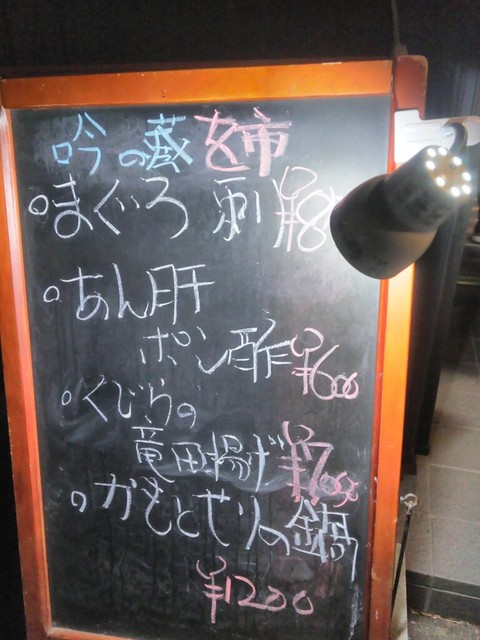 吟の蔵
○まぐろ 刺 ¥8
○あん肝
ポン酢 ¥600
○くじらの
竜田揚げ ¥700
○かもとせりの鍋
¥1200